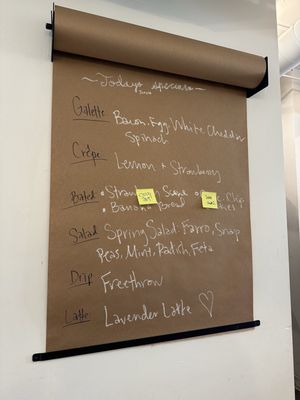 ~Todays specials~
Galette Bacon, Egg, White Cheddar
Spinach
Crêpe Lemon + Strawberry
Baked • Straw Scone Chip
• Banana Bread
Salad Spring Salad: Farro, Snap
Peas, Mint, Radish, Feta
Drip Freethrow
Latte Lavender Latte ♡